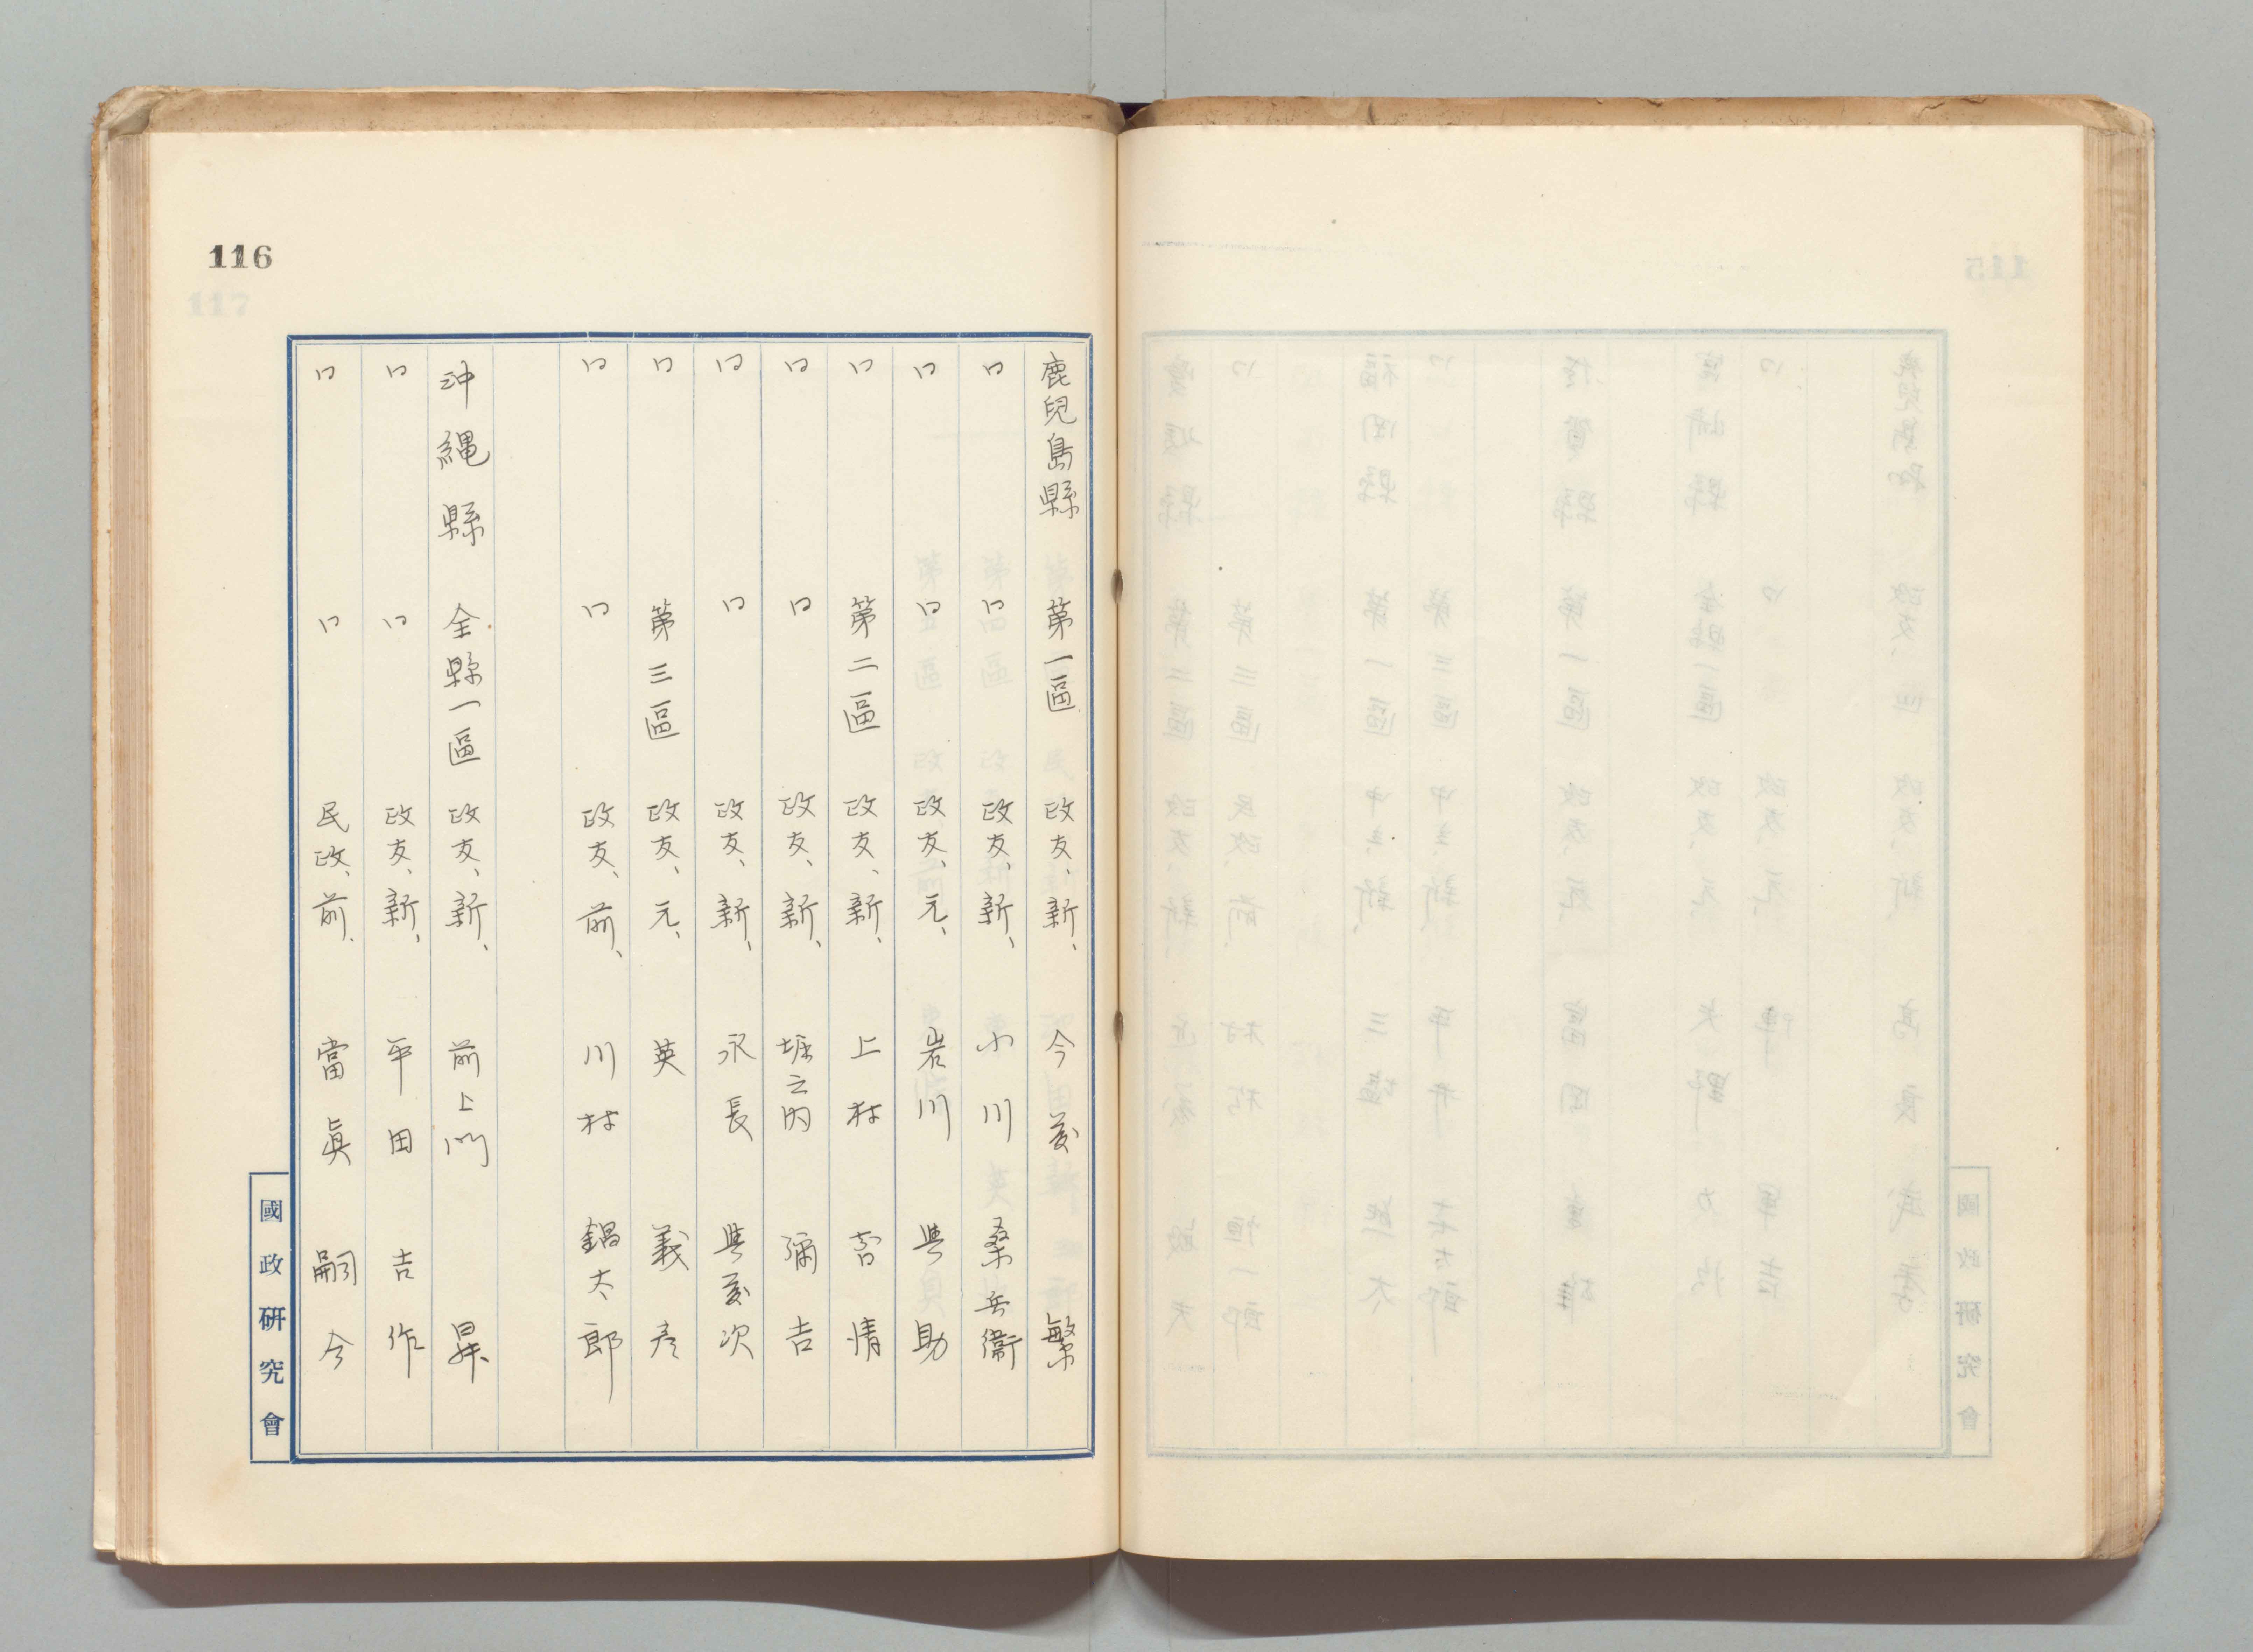 116
鹿兒島縣 第一區 政友、新、 今 繁
〃 〃 政友、新、 小川 桑兵衞
〃 〃 政友、元、 岩川 與助
〃 第二區 政友、新、 上村 清
〃 〃 政友、新、 堀之内 彌吉
〃 〃 政友、新、 永長 與次
〃 第三區 政友、元、 英 義彦
〃 〃 政友、前、 川村 錫太郎
沖縄縣 全縣一區 政友、新、 前上門 昇
〃 〃 政友、新、 平田 吉作
〃 〃 民政、前、 當眞 嗣合
國政研究會